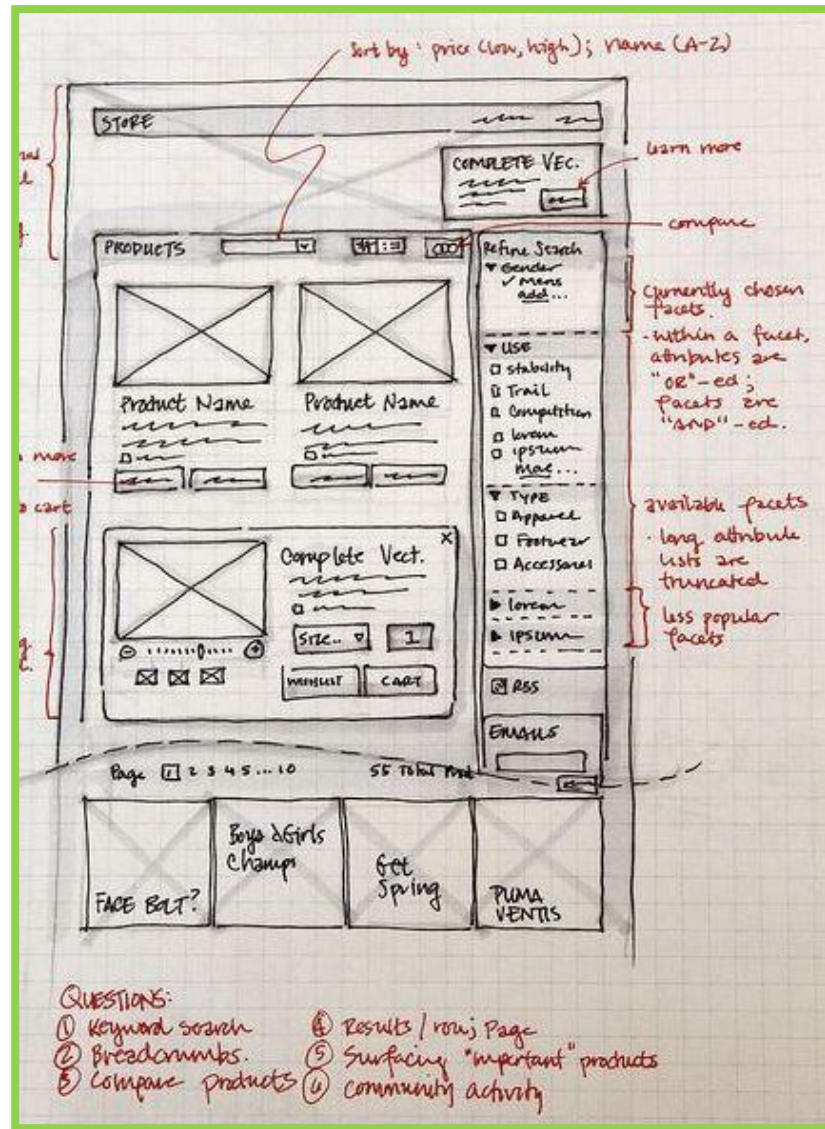 sort by: price (low, high); name (A-Z)
STORE
COMPLETE VEC.
learn more
compare
PRODUCTS
Refine Search
Gender
✓ Mens
add...
currently chosen
facets.
- within a facet,
attributes are
"OR"-ed;
facets are
"AND"-ed.
USE
stability
Trail
Competition
lorem
ipsum
more...
Product Name
Product Name
more
cart
TYPE
Apparel
Footwear
Accessories
available facets
· long attribute
lists are
truncated
lorem
ipsum
less popular
facets
Complete Vect.
X
SIZE..
1
WISHLIST
CART
RSS
EMAILS
Page 1 2 3 4 5 ... 10
55 Total Prod
FACE BOLT?
Boys & Girls
Champs
Get
Spring
PUMA
VENTIS
QUESTIONS:
1 Keyword search
2 Breadcrumbs.
3 Compare products
4 Results / row; Page
5 Surfacing "important" products
6 Community activity